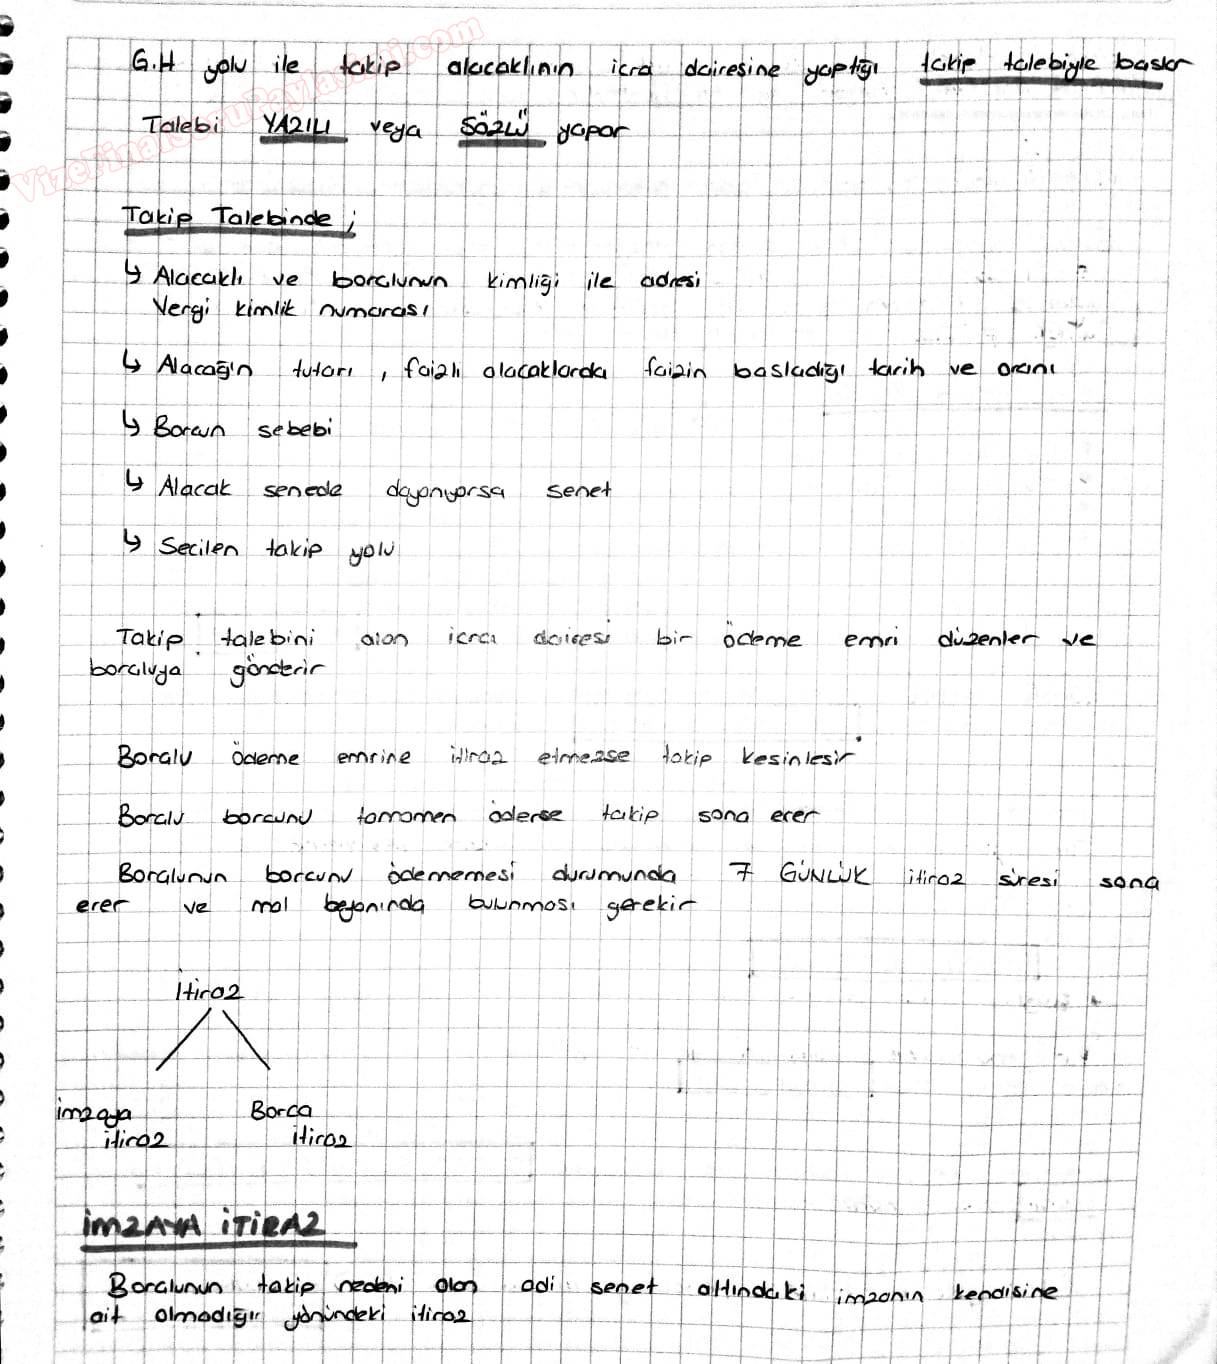 VizeFinalSoruPaylasimi.com
G.H yolu ile takip alacaklının icra dairesine yaptığı takip talebiyle baslar
Talebi YAZILI veya SÖZLÜ yapar
Takip Talebinde ;
↳ Alacaklı ve borclunun kimliği ile adresi
Vergi kimlik numarası
↳ Alacağın tutarı , faizli alacaklarda faizin basladığı tarih ve oranı
↳ Borcun sebebi
↳ Alacak senede dayanıyorsa senet
↳ Secilen takip yolu
Takip talebini alan icra dairesi bir ödeme emri düzenler ve
borcluya gönderir
Borclu ödeme emrine itiraz etmezse takip kesinlesir
Borclu borcunu tamamen öderse takip sona erer
Borclunun borcunu ödememesi durumunda 7 GÜNLÜK itiraz süresi sona
erer ve mal beyanında bulunması gerekir
İtiraz
imzaya Borca
itiraz itiraz
İMZAYA İTİRAZ
Borclunun takip nedeni olan adi senet altındaki imzanın kendisine
ait olmadığı yönündeki itiraz